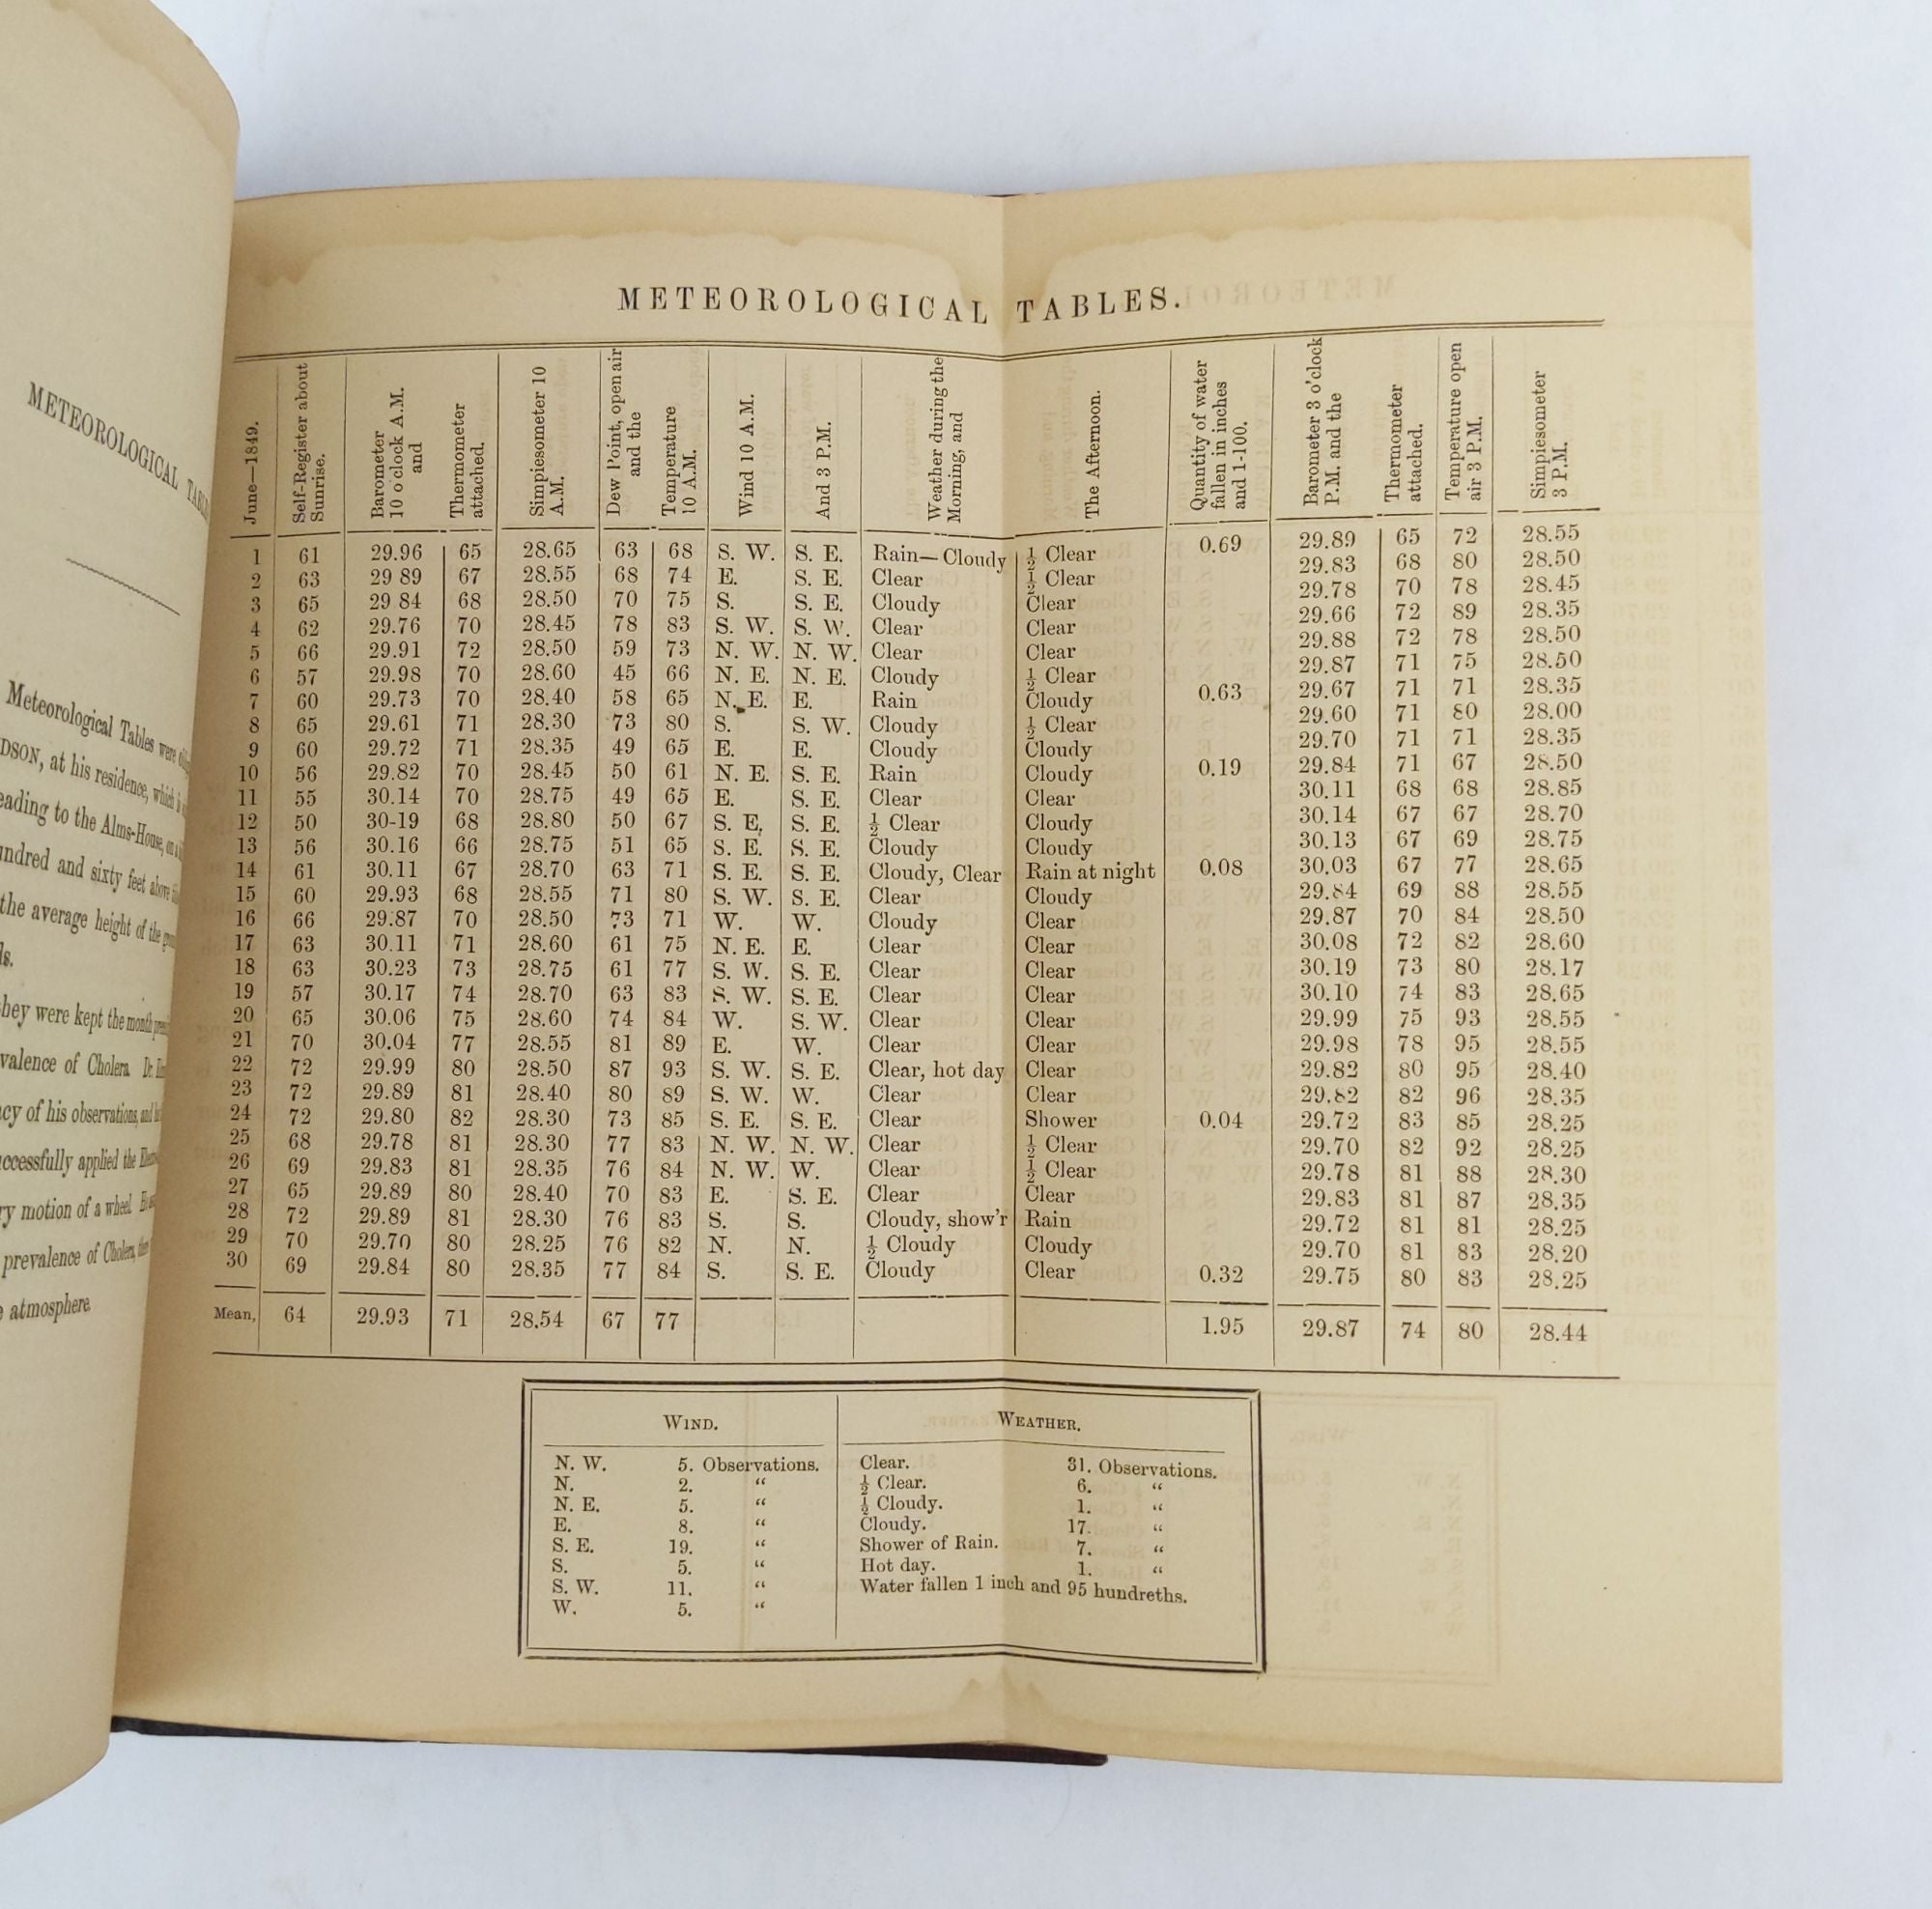 METEOROLOGICAL
Meteorological Tables were
DSON, at his residence, which is
eading to the Alms-House,
undred and sixty feet above
the average height of the
ls.
they were kept the month
valence of Cholera.
cy of his observations, and
uccessfully applied the
ry motion of a wheel.
prevalence of Cholera,
e atmosphere
METEOROLOGICAL TABLES.
June—1849. Self-Register about Sunrise. Barometer 10 o'clock A.M. and Thermometer attached. Simpiesometer 10 A.M. Dew Point, open air and the Temperature 10 A.M. Wind 10 A.M. And 3 P.M. Weather during the Morning, and The Afternoon. Quantity of water fallen in inches and 1-100. Barometer 3 o'clock P.M. and the Thermometer attached. Temperature open air 3 P.M. Simpiesometer 3 P.M.
1 61 29.96 65 28.65 63 68 S. W. S. E. Rain—Cloudy ½ Clear 0.69 29.89 65 72 28.55
2 63 29 89 67 28.55 68 74 E. S. E. Clear ½ Clear 29.83 68 80 28.50
3 65 29 84 68 28.50 70 75 S. S. E. Cloudy Clear 29.78 70 78 28.45
4 62 29.76 70 28.45 78 83 S. W. S. W. Clear Clear 29.66 72 89 28.35
5 66 29.91 72 28.50 59 73 N. W. N. W. Clear Clear 29.88 72 78 28.50
6 57 29.98 70 28.60 45 66 N. E. N. E. Cloudy ½ Clear 29.87 71 75 28.50
7 60 29.73 70 28.40 58 65 N. E. E. Rain Cloudy 0.63 29.67 71 71 28.35
8 65 29.61 71 28.30 73 80 S. S. W. Cloudy ½ Clear 29.60 71 80 28.00
9 60 29.72 71 28.35 49 65 E. E. Cloudy Cloudy 29.70 71 71 28.35
10 56 29.82 70 28.45 50 61 N. E. S. E. Rain Cloudy 0.19 29.84 71 67 28.50
11 55 30.14 70 28.75 49 65 E. S. E. Clear Clear 30.11 68 68 28.85
12 50 30-19 68 28.80 50 67 S. E. S. E. ½ Clear Cloudy 30.14 67 67 28.70
13 56 30.16 66 28.75 51 65 S. E. S. E. Cloudy Cloudy 30.13 67 69 28.75
14 61 30.11 67 28.70 63 71 S. E. S. E. Cloudy, Clear Rain at night 0.08 30.03 67 77 28.65
15 60 29.93 68 28.55 71 80 S. W. S. E. Clear Cloudy 29.84 69 88 28.55
16 66 29.87 70 28.50 73 71 W. W. Cloudy Clear 29.87 70 84 28.50
17 63 30.11 71 28.60 61 75 N. E. E. Clear Clear 30.08 72 82 28.60
18 63 30.23 73 28.75 61 77 S. W. S. E. Clear Clear 30.19 73 80 28.17
19 57 30.17 74 28.70 63 83 S. W. S. E. Clear Clear 30.10 74 83 28.65
20 65 30.06 75 28.60 74 84 W. S. W. Clear Clear 29.99 75 93 28.55
21 70 30.04 77 28.55 81 89 E. W. Clear Clear 29.98 78 95 28.55
22 72 29.99 80 28.50 87 93 S. W. S. E. Clear, hot day Clear 29.82 80 95 28.40
23 72 29.89 81 28.40 80 89 S. W. W. Clear Clear 29.82 82 96 28.35
24 72 29.80 82 28.30 73 85 S. E. S. E. Clear Shower 0.04 29.72 83 85 28.25
25 68 29.78 81 28.30 77 83 N. W. N. W. Clear ½ Clear 29.70 82 92 28.25
26 69 29.83 81 28.35 76 84 N. W. W. Clear ½ Clear 29.78 81 88 28.30
27 65 29.89 80 28.40 70 83 E. S. E. Clear Clear 29.83 81 87 28.35
28 72 29.89 81 28.30 76 83 S. S. Cloudy, show'r Rain 29.72 81 81 28.25
29 70 29.70 80 28.25 76 82 N. N. ½ Cloudy Cloudy 29.70 81 83 28.20
30 69 29.84 80 28.35 77 84 S. S. E. Cloudy Clear 0.32 29.75 80 83 28.25
Mean, 64 29.93 71 28.54 67 77 1.95 29.87 74 80 28.44
WIND.
N. W. 5. Observations.
N. 2. "
N. E. 5. "
E. 8. "
S. E. 19. "
S. 5. "
S. W. 11. "
W. 5. "
WEATHER.
Clear. 31. Observations.
½ Clear. 6. "
½ Cloudy. 1. "
Cloudy. 17. "
Shower of Rain. 7. "
Hot day. 1. "
Water fallen 1 inch and 95 hundreths.